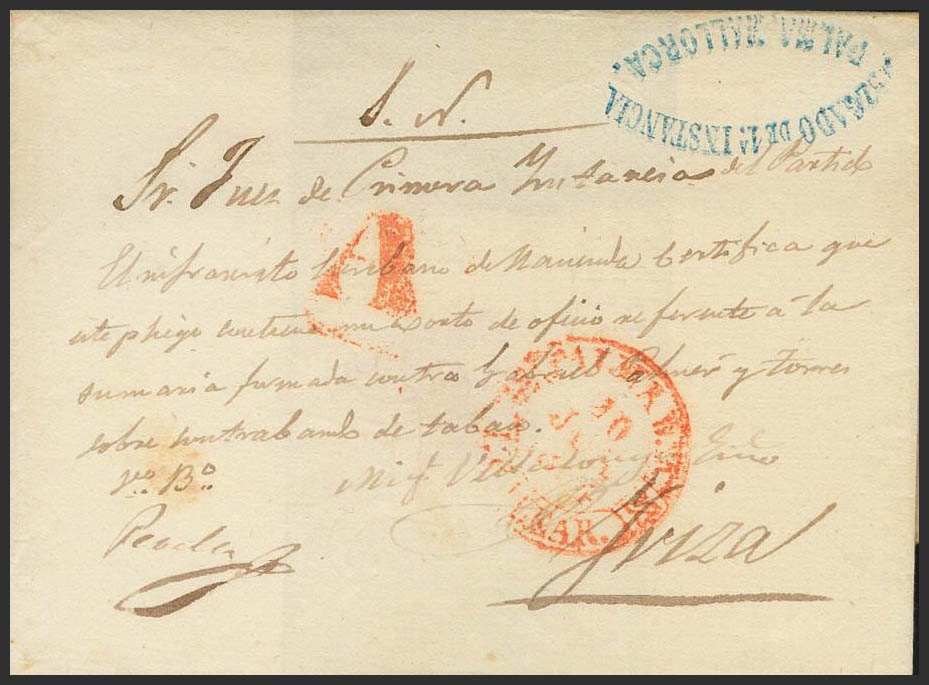 JUZGADO DE 1ª INSTANCIA
PALMA MALLORCA.
S. N.
Sr. Juez de Primera Ynstancia del Partido
A
El infrascrito Escribano de Hacienda Certifica que
este pliego contiene un exorto de oficio referente á la
sumaria formada contra Gabriel Palmér y torres
sobre contrabando de tabaco.
Vto. Bo.
Mig.l Villalonga Ess.no
PALMA
10
BAR.
Yviza